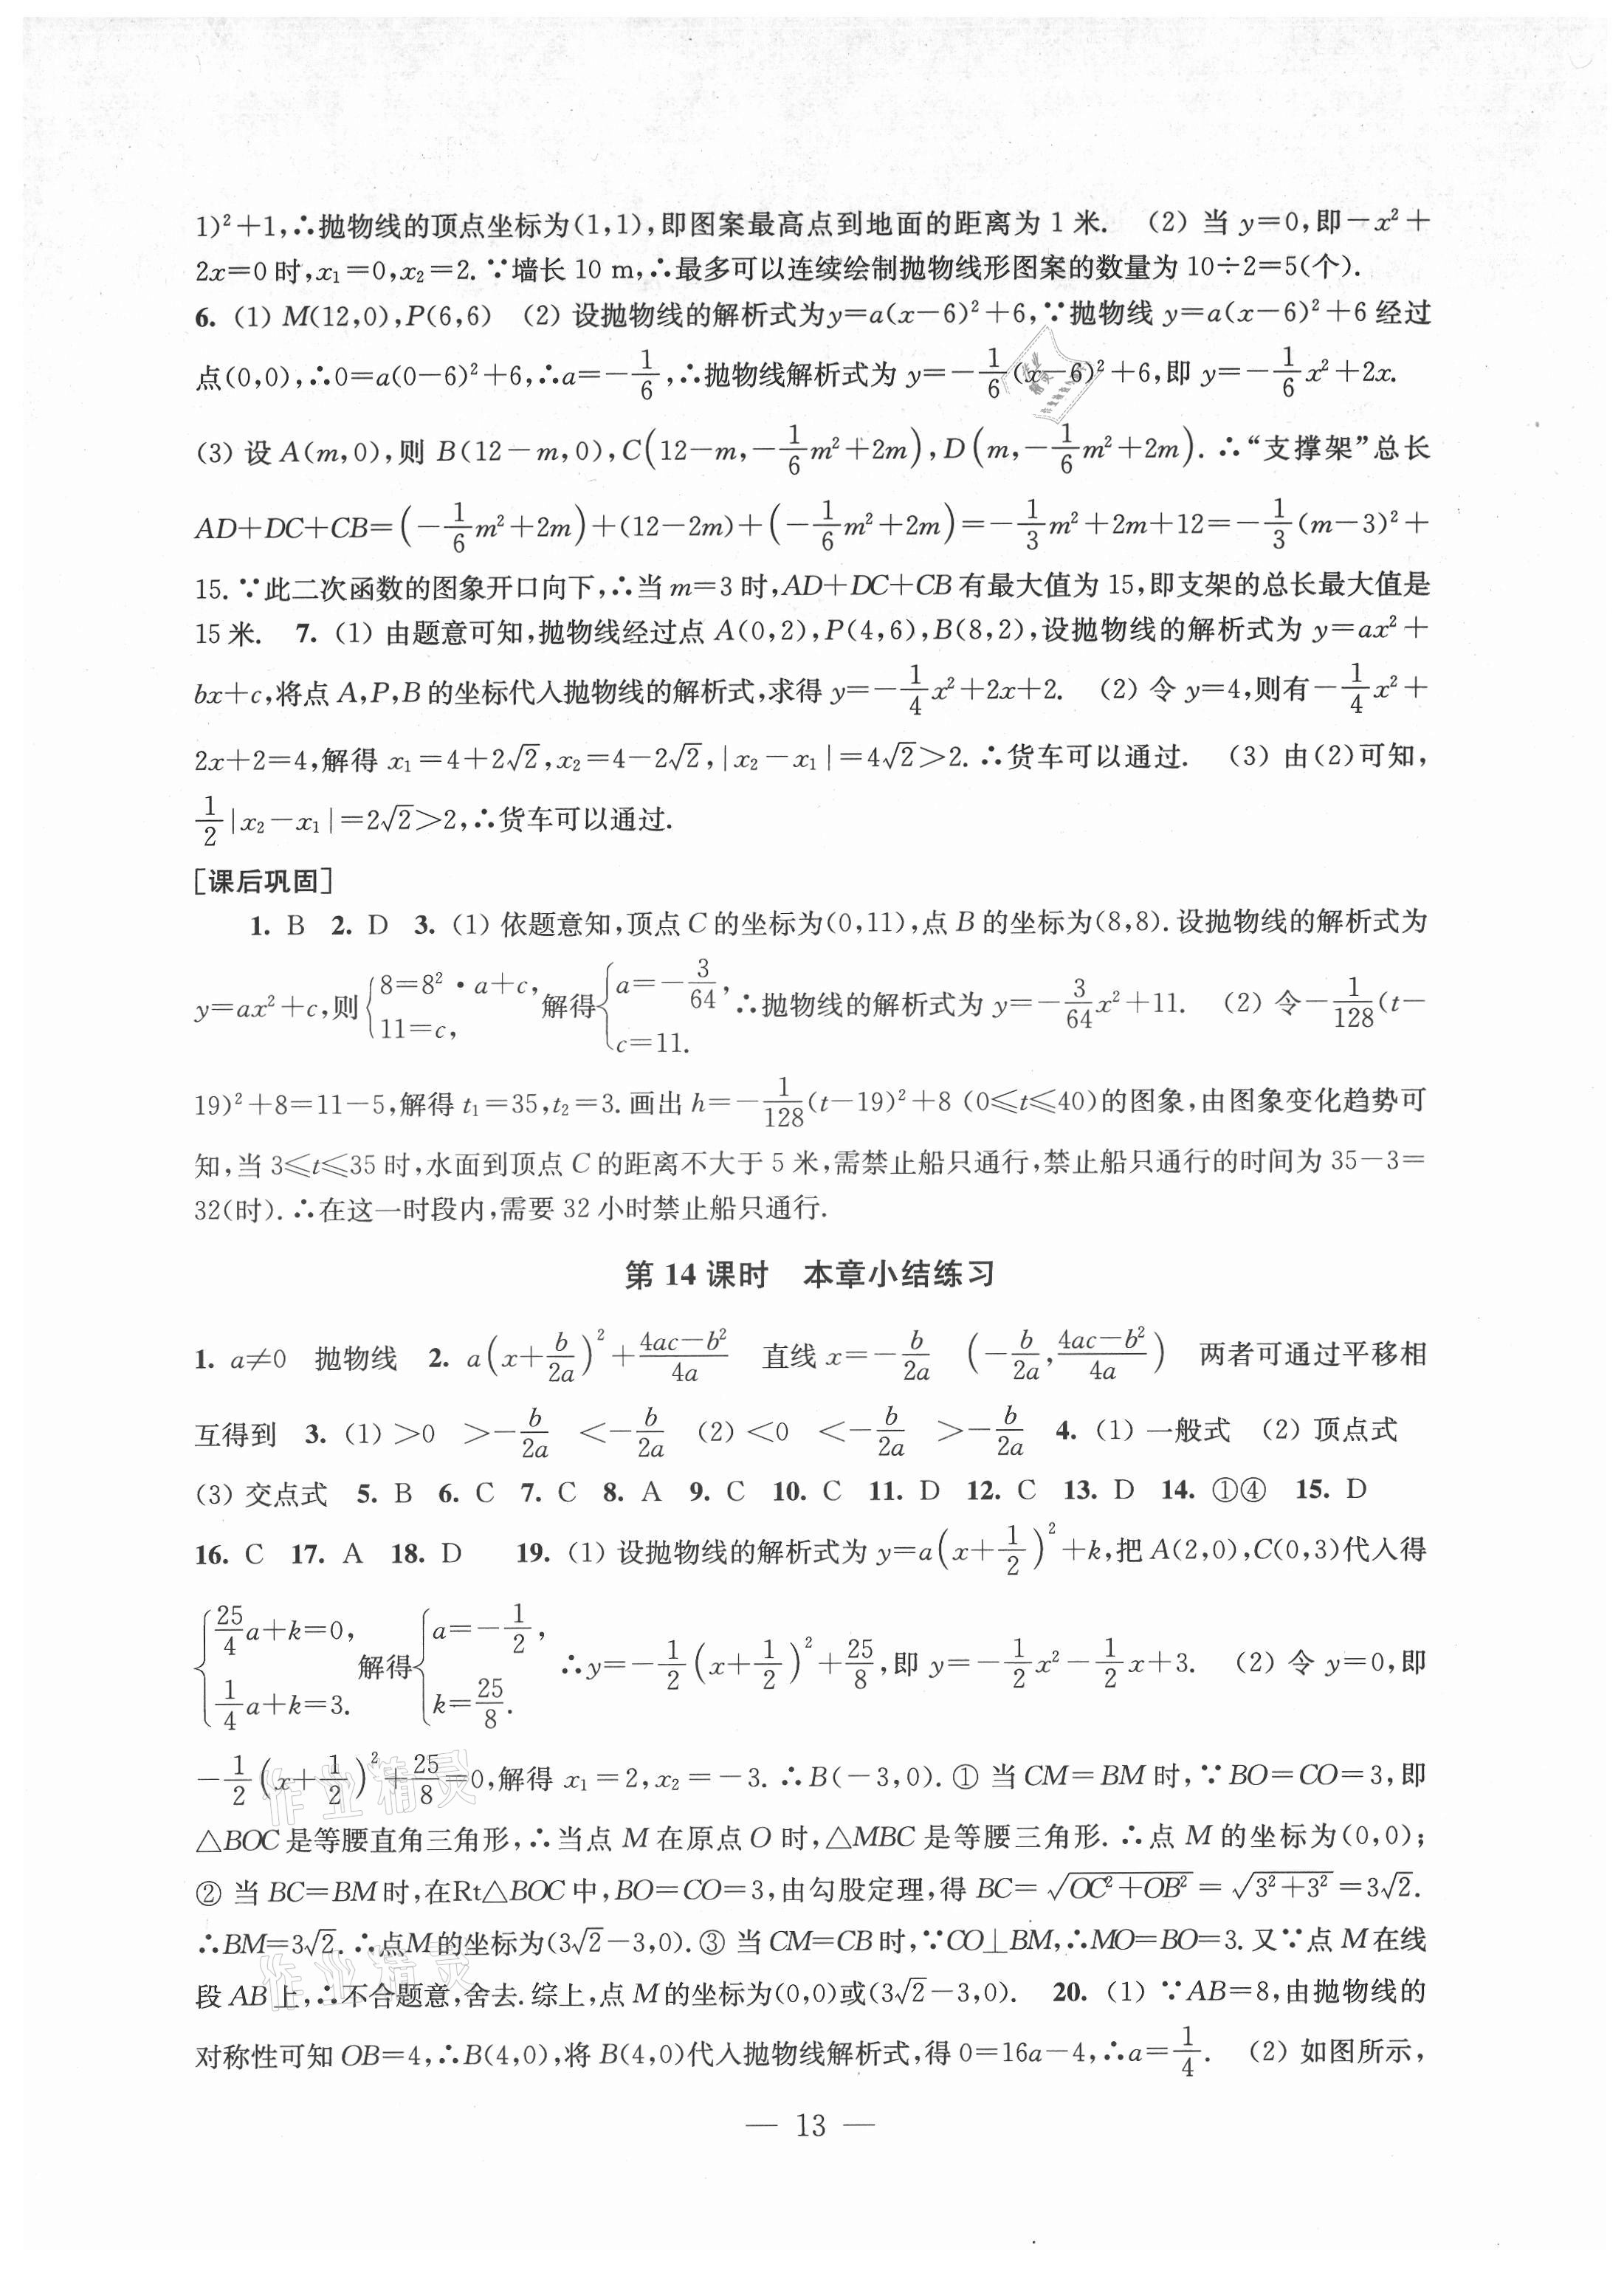 1)²+1,∴抛物线的顶点坐标为(1,1),即图案最高点到地面的距离为 1 米. (2) 当 y=0,即−x²+
2x=0 时,x₁=0,x₂=2. ∵墙长 10 m,∴最多可以连续绘制抛物线形图案的数量为 10÷2=5(个).
6. (1) M(12,0),P(6,6) (2) 设抛物线的解析式为y=a(x−6)²+6,∵抛物线 y=a(x−6)²+6 经过
点(0,0),∴0=a(0−6)²+6,∴a=−1/6,∴抛物线解析式为 y=−1/6(x−6)²+6,即 y=−1/6x²+2x.
(3) 设 A(m,0),则 B(12−m,0),C(12−m,−1/6m²+2m),D(m,−1/6m²+2m). ∴“支撑架”总长
AD+DC+CB=(−1/6m²+2m)+(12−2m)+(−1/6m²+2m)=−1/3m²+2m+12=−1/3(m−3)²+
15. ∵此二次函数的图象开口向下,∴当 m=3 时,AD+DC+CB 有最大值为 15,即支架的总长最大值是
15 米. 7. (1) 由题意可知,抛物线经过点 A(0,2),P(4,6),B(8,2),设抛物线的解析式为 y=ax²+
bx+c,将点 A,P,B 的坐标代入抛物线的解析式,求得 y=−1/4x²+2x+2. (2) 令 y=4,则有−1/4x²+
2x+2=4,解得 x₁=4+2√2,x₂=4−2√2,|x₂−x₁|=4√2>2. ∴货车可以通过. (3) 由(2)可知,
1/2|x₂−x₁|=2√2>2,∴货车可以通过.
[课后巩固]
1. B 2. D 3. (1) 依题意知,顶点 C 的坐标为(0,11),点 B 的坐标为(8,8). 设抛物线的解析式为
y=ax²+c,则{8=8²·a+c, 11=c, 解得{a=−3/64, c=11. ∴抛物线的解析式为 y=−3/64x²+11. (2) 令−1/128(t−
19)²+8=11−5,解得 t₁=35,t₂=3. 画出 h=−1/128(t−19)²+8 (0≤t≤40)的图象,由图象变化趋势可
知,当 3≤t≤35 时,水面到顶点 C 的距离不大于 5 米,需禁止船只通行,禁止船只通行的时间为 35−3=
32(时). ∴在这一时段内,需要 32 小时禁止船只通行.
第 14 课时 本章小结练习
1. a≠0 抛物线 2. a(x+b/2a)²+(4ac−b²)/4a 直线 x=−b/2a (−b/2a,(4ac−b²)/4a) 两者可通过平移相
互得到 3. (1) >0 >−b/2a <−b/2a (2) <0 <−b/2a >−b/2a 4. (1) 一般式 (2) 顶点式
(3) 交点式 5. B 6. C 7. C 8. A 9. C 10. C 11. D 12. C 13. D 14. ①④ 15. D
16. C 17. A 18. D 19. (1) 设抛物线的解析式为 y=a(x+1/2)²+k,把 A(2,0),C(0,3)代入得
{25/4a+k=0, 1/4a+k=3. 解得{a=−1/2, k=25/8. ∴y=−1/2(x+1/2)²+25/8,即 y=−1/2x²−1/2x+3. (2) 令 y=0,即
−1/2(x+1/2)²+25/8=0,解得 x₁=2,x₂=−3. ∴B(−3,0). ① 当 CM=BM 时,∵BO=CO=3,即
△BOC 是等腰直角三角形,∴当点 M 在原点 O 时,△MBC 是等腰三角形. ∴点 M 的坐标为(0,0);
② 当 BC=BM 时,在Rt△BOC 中,BO=CO=3,由勾股定理,得 BC=√(OC²+OB²)=√(3²+3²)=3√2.
∴BM=3√2. ∴点M的坐标为(3√2−3,0). ③ 当 CM=CB 时,∵CO⊥BM,∴MO=BO=3. 又∵点 M 在线
段 AB 上,∴不合题意,舍去. 综上,点 M 的坐标为(0,0)或(3√2−3,0). 20. (1) ∵AB=8,由抛物线的
对称性可知 OB=4,∴B(4,0),将 B(4,0)代入抛物线解析式,得 0=16a−4,∴a=1/4. (2) 如图所示,
— 13 —
作业精灵
作业精灵